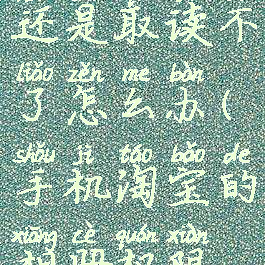 还是取读不
liǎo zěn me bàn
了怎么办(
shǒu jī táo bǎo de
手机淘宝的
xiāng cè quán xiàn
相册权限